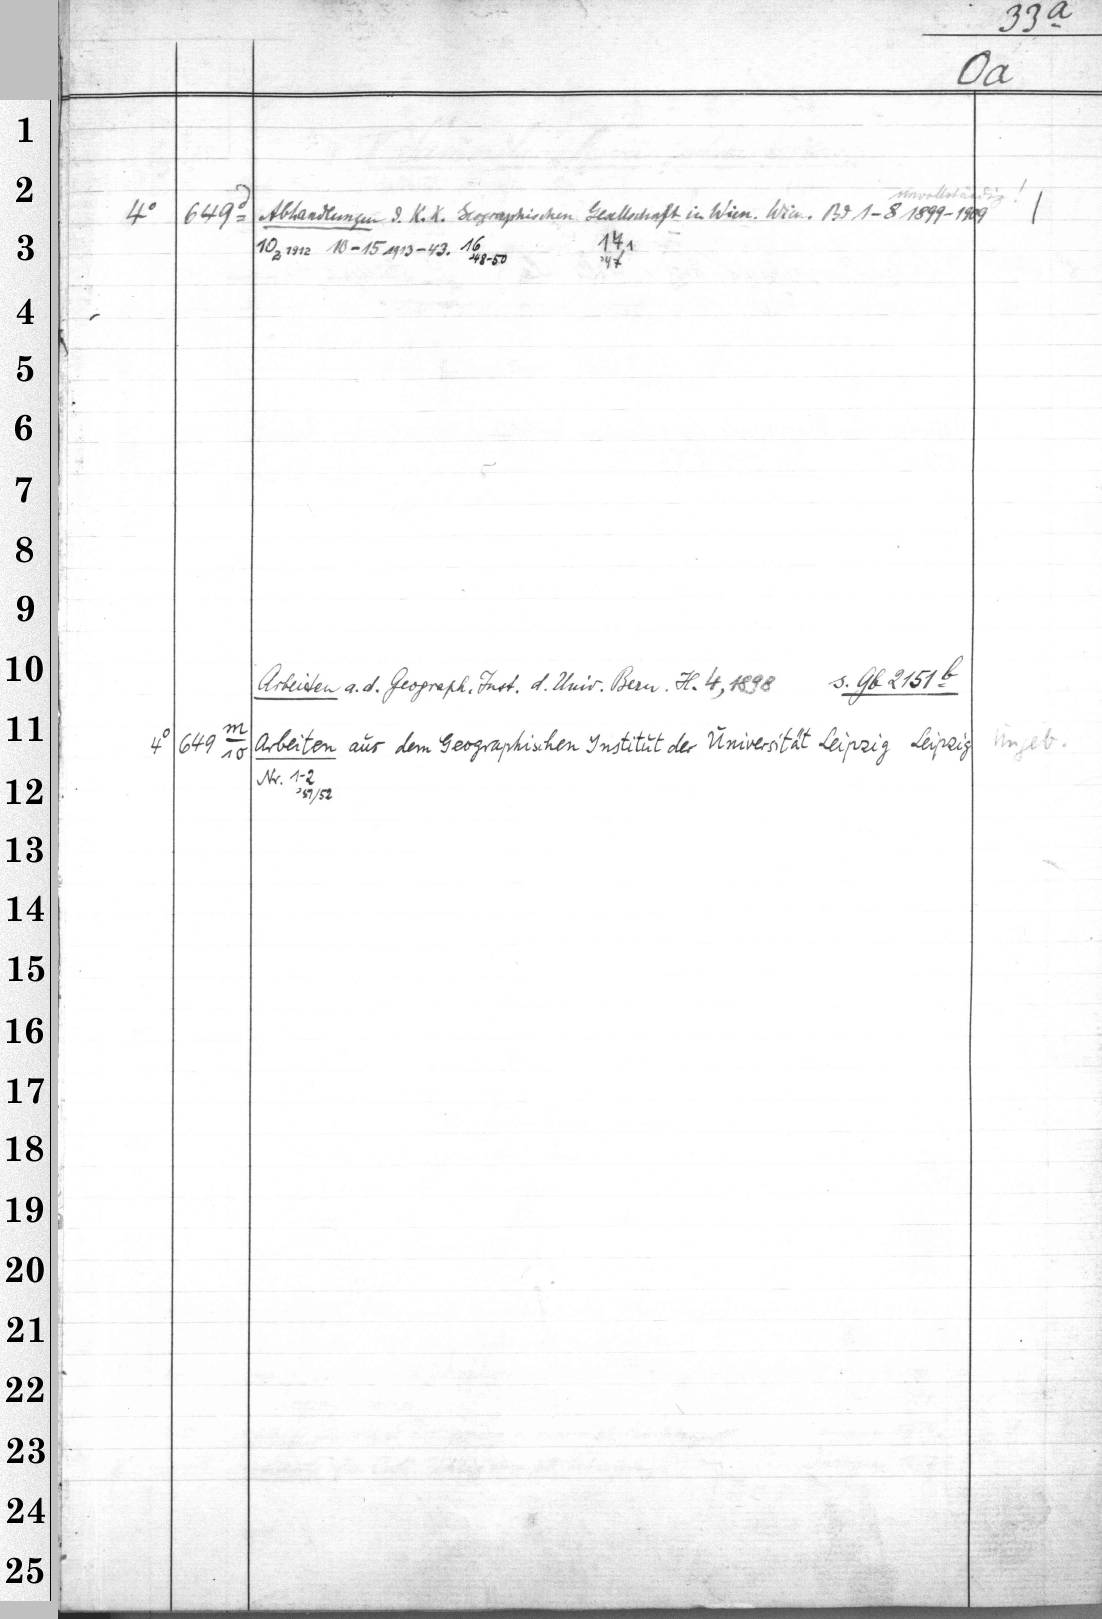 33a
Oa
1
2
unvollständig!
4° 649 Abhandlungen d. K. K. Geographischen Gesellschaft in Wien. Wien. Bd 1-8 1899-1909
3
10 1912 10-15 1913-43. 16 17,1
48-50 '47
4
5
6
7
8
9
10
Arbeiten a. d. Geograph. Inst. d. Univ. Bern. H. 4, 1898 s. Gb 2151 b
11
4° 649 m/10 Arbeiten aus dem Geographischen Institut der Universität Leipzig Leipzig Ungeb.
12
Nr. 1-2
'51/52
13
14
15
16
17
18
19
20
21
22
23
24
25